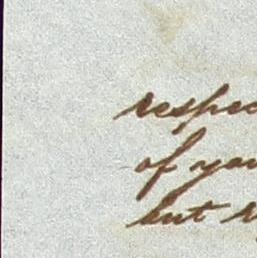 respec
of you
but